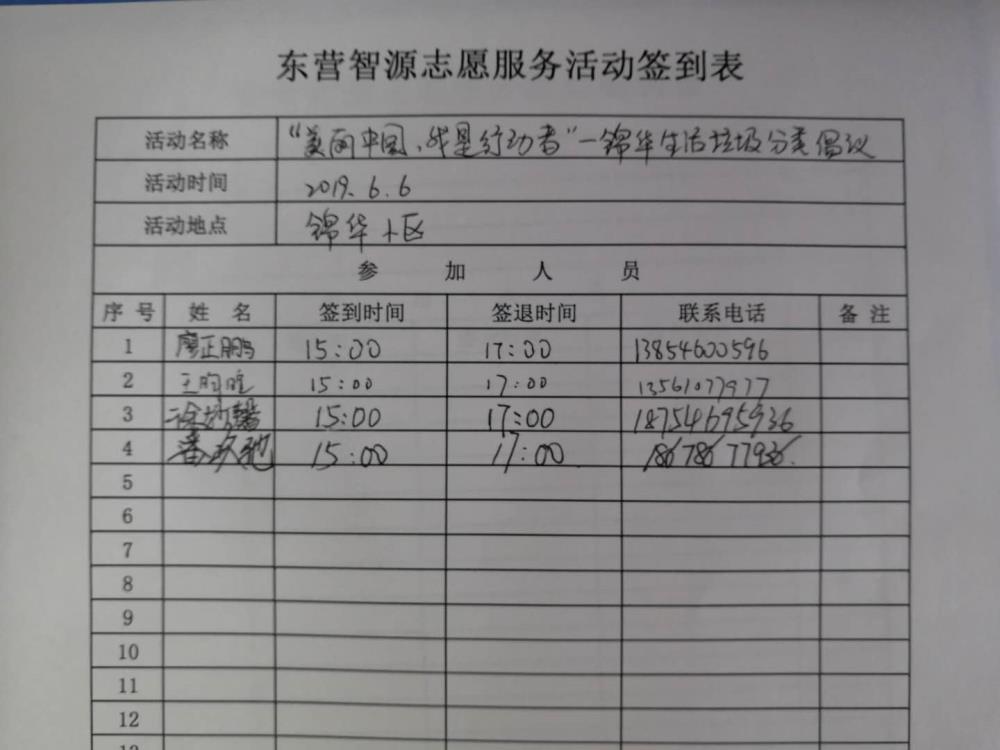 东营智源志愿服务活动签到表
活动名称 “美丽中国,我是行动者”—锦华生活垃圾分类倡议
活动时间 2019.6.6
活动地点 锦华小区
参 加 人 员
序号 姓名 签到时间 签退时间 联系电话 备注
1 廖正鹏 15:00 17:00 13854600596
2 15:00 17:00 13561077977
3 15:00 17:00 18754695936
4 15:00 17:00 18678677936
5
6
7
8
9
10
11
12